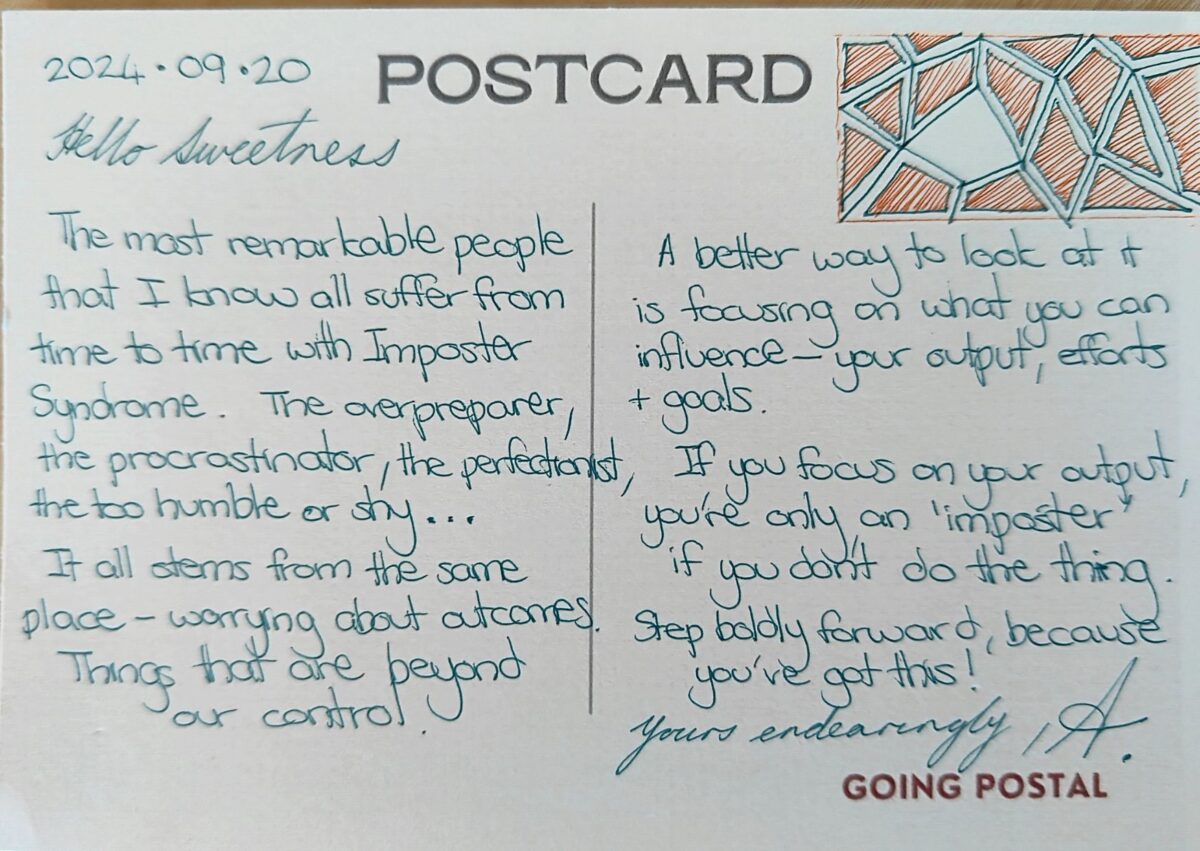 2024 · 09 · 20
POSTCARD
Hello Sweetness
The most remarkable people
that I know all suffer from
time to time with Imposter
Syndrome. The overpreparer,
the procrastinator, the perfectionist,
the too humble or shy...
It all stems from the same
place – worrying about outcomes.
Things that are beyond
our control.
A better way to look at it
is focusing on what you can
influence – your output, efforts
+ goals.
If you focus on your output,
you're only an 'imposter'
if you don't do the thing.
Step boldly forward, because
you've got this!
Yours endearingly, A.
GOING POSTAL